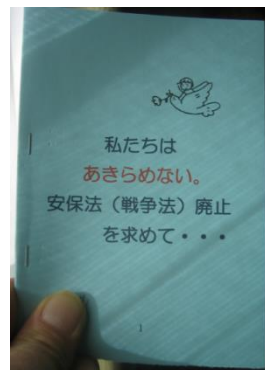 私たちは
あきらめない。
安保法（戦争法）廃止
を求めて・・・
1